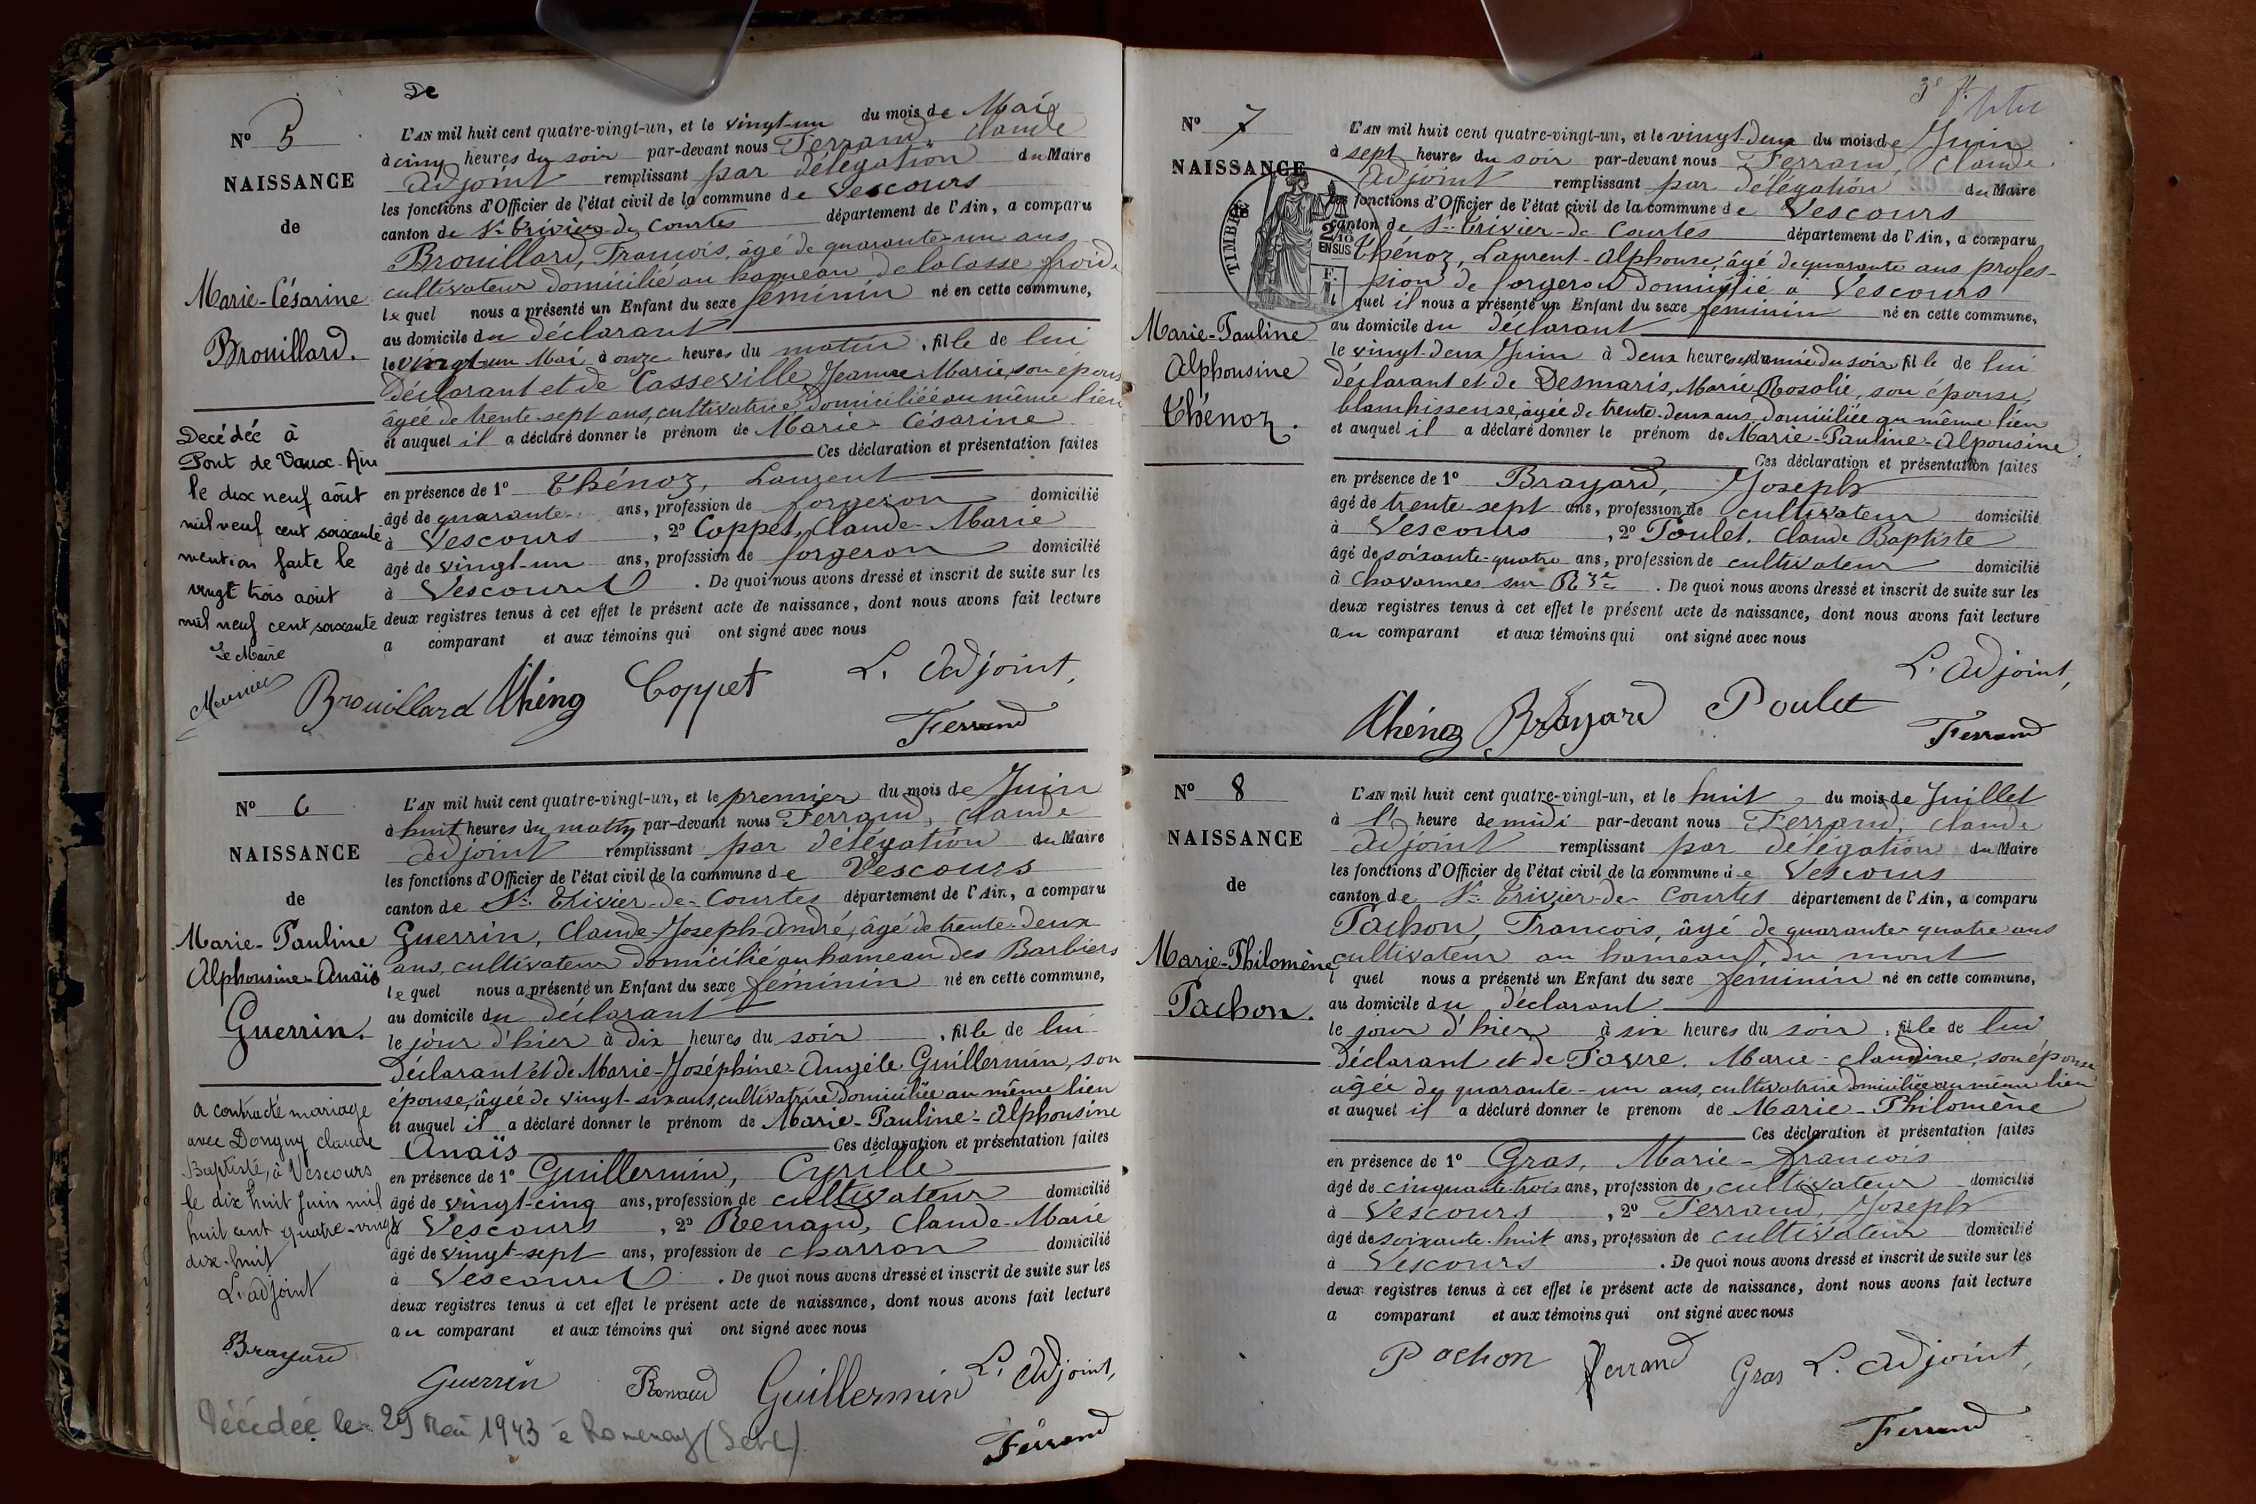 De
N° 5
NAISSANCE
de
Marie-Césarine
Brouillard.
Decédéé à
Pont de Vaux-Ain
le dix neuf août
mil neuf cent soixante
mention faite le
vingt trois août
mil neuf cent soixante
Le Maire
L'AN mil huit cent quatre-vingt-un, et le vingt-un du mois de Mai
à cinq heures du soir par-devant nous Ferrand, Claude
adjoint remplissant par délégation du Maire
les fonctions d'Officier de l'état civil de la commune de Vescours
canton de St Trivier-de-Courtes département de l'Ain, a comparu
Brouillard, François, âgé de quarante-un ans
cultivateur domicilié au hameau de la Casse froide
lequel nous a présenté un Enfant du sexe féminin né en cette commune,
au domicile du déclarant
le vingt-un Mai à onze heures du matin, fille de lui
déclarant et de Casseville, Jeanne Marie, son épouse
âgée de trente-sept ans, cultivatrice domiciliée au même lieu
et auquel il a déclaré donner le prénom de Marie-Césarine
Ces déclaration et présentation faites
en présence de 1° Thénoz, Laurent
âgé de quarante ans, profession de forgeron domicilié
à Vescours, 2° Coppet, Claude-Marie
âgé de vingt-un ans, profession de forgeron domicilié
à Vescours. De quoi nous avons dressé et inscrit de suite sur les
deux registres tenus à cet effet le présent acte de naissance, dont nous avons fait lecture
a comparant et aux témoins qui ont signé avec nous
Brouillard Thénoz Coppet L'Adjoint,
Ferrand
N° 6
NAISSANCE
de
Marie-Pauline
Alphonsine-Anaïs
Guerrin.
a contracté mariage
avec Donguy Claude
Baptiste, à Vescours
le dix huit Juin mil
huit cent quatre-vingt
dix-huit
L'adjoint
Brayard
L'AN mil huit cent quatre-vingt-un, et le premier du mois de Juin
à huit heures du matin par-devant nous Ferrand, Claude
adjoint remplissant par délégation du Maire
les fonctions d'Officier de l'état civil de la commune de Vescours
canton de St Trivier-de-Courtes département de l'Ain, a comparu
Guerrin, Claude-Joseph-André, âgé de trente-deux
ans, cultivateur domicilié au hameau des Barbiers
lequel nous a présenté un Enfant du sexe féminin né en cette commune,
au domicile du déclarant
le jour d'hier à dix heures du soir, fille de lui
déclarant et de Marie-Joséphine-Angèle Guillermin, son
épouse, âgée de vingt-six ans, cultivatrice domiciliée au même lieu
et auquel il a déclaré donner le prénom de Marie-Pauline-Alphonsine
Anaïs Ces déclaration et présentation faites
en présence de 1° Guillermin, Cyrille
âgé de vingt-cinq ans, profession de cultivateur domicilié
à Vescours, 2° Renaud, Claude-Marie
âgé de vingt-sept ans, profession de charron domicilié
à Vescours. De quoi nous avons dressé et inscrit de suite sur les
deux registres tenus à cet effet le présent acte de naissance, dont nous avons fait lecture
au comparant et aux témoins qui ont signé avec nous
Guerrin Renaud Guillermin L'Adjoint,
Ferrand
Décédée le 29 Mai 1943 à Romenay (S et L)
N° 7
NAISSANCE
de
TIMBRE
2/10
EN SUS
Marie-Pauline
Alphonsine
Thénoz.
L'AN mil huit cent quatre-vingt-un, et le vingt-deux du mois de Juin
à sept heures du soir par-devant nous Ferrand, Claude
adjoint remplissant par délégation du Maire
les fonctions d'Officier de l'état civil de la commune de Vescours
canton de St Trivier-de-Courtes département de l'Ain, a comparu
Thénoz, Laurent-Alphonse, âgé de quarante ans profes-
sion de forgeron domicilié à Vescours
lequel il nous a présenté un Enfant du sexe féminin né en cette commune,
au domicile du déclarant
le vingt-deux Juin à deux heures et demie du soir, fille de lui
déclarant et de Desmaris, Marie Rosalie, son épouse,
blanchisseuse, âgée de trente-deux ans, domiciliée au même lieu
et auquel il a déclaré donner le prénom de Marie-Pauline-Alpousine.
Ces déclaration et présentation faites
en présence de 1° Brayard, Joseph
âgé de trente-sept ans, profession de cultivateur domicilié
à Vescours, 2° Poulet, Claude Baptiste
âgé de soixante-quatre ans, profession de cultivateur domicilié
à Chavannes sur Rze. De quoi nous avons dressé et inscrit de suite sur les
deux registres tenus à cet effet le présent acte de naissance, dont nous avons fait lecture
au comparant et aux témoins qui ont signé avec nous
L'Adjoint,
Thénoz Brayard Poulet
Ferrand
N° 8
NAISSANCE
de
Marie-Philomène
Pachon.
L'AN mil huit cent quatre-vingt-un, et le huit du mois de Juillet
à l' heure de midi par-devant nous Ferrand, Claude
adjoint remplissant par délégation du Maire
les fonctions d'Officier de l'état civil de la commune de Vescours
canton de St Trivier-de-Courtes département de l'Ain, a comparu
Pachon, François, âgé de quarante-quatre ans
cultivateur au hameau du mont
l quel nous a présenté un Enfant du sexe féminin né en cette commune,
au domicile du déclarant
le jour d'hier à six heures du soir, fille de lui
déclarant et de Favre, Marie-Claudine, son épouse
agée de quarante-un ans, cultivatrice domiciliée au même lieu
et auquel il a déclaré donner le prenom de Marie-Philomène
Ces déclaration et présentation faites
en présence de 1° Gras, Marie-François
âgé de cinquante-trois ans, profession de cultivateur domicilié
à Vescours, 2° Ferrand, Joseph
âgé de soixante-huit ans, profession de cultivateur domicilié
à Vescours. De quoi nous avons dressé et inscrit de suite sur les
deux registres tenus à cet effet le présent acte de naissance, dont nous avons fait lecture
a comparant et aux témoins qui ont signé avec nous
Pachon Ferrand Gras L'Adjoint,
Ferrand